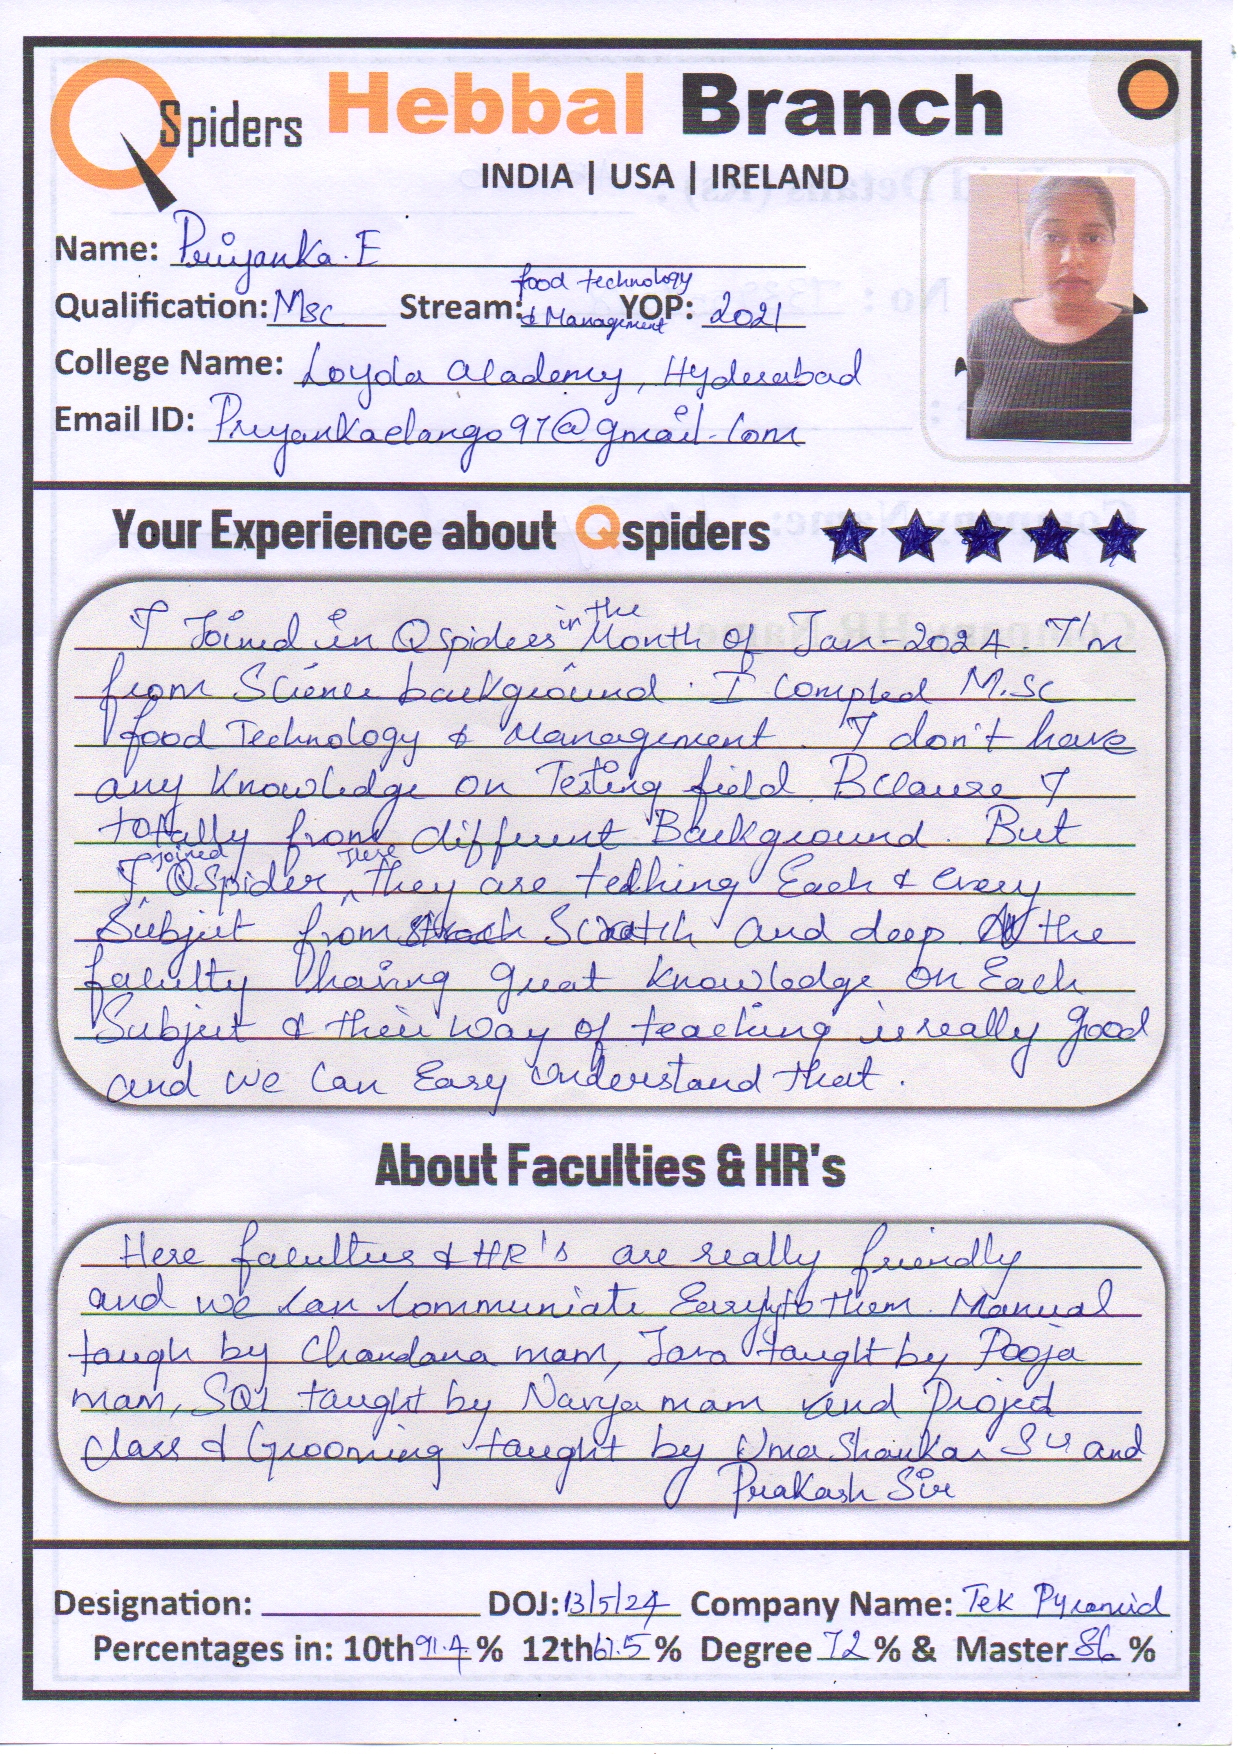 QSpiders Hebbal Branch
INDIA | USA | IRELAND
Name: Priyanka. E
Qualification: Msc Stream: food technology & Management YOP: 2021
College Name: Loyola Academy, Hyderabad
Email ID: Priyankaelango97@gmail.com
Your Experience about Qspiders
I Joined in Qspiders in the Month of Jan-2024. I'm
from Science background. I compled M.Sc
food Technology & Management. I don't have
any knowledge on Testing field. Because I
totally from different Background. But
I joined QSpider there they are teching Each & every
Subject from Scratch and deep. the
faculty having great knowledge on Each
Subject & their way of teaching is really good
and we can Easy understand that.
About Faculties & HR's
Here faculties & HR's are really friendly
and we can communicate Easy to them. Manual
taugh by Chandana mam, Java taught by Pooja
mam, SQL taught by Navya mam and Project
class & Grooming taught by Uma Shankar Sir and
Prakash Sir
Designation: DOJ: 13/5/24 Company Name: Tek Pyramid
Percentages in: 10th 91.4 % 12th 67.5 % Degree 72 % & Master 86 %